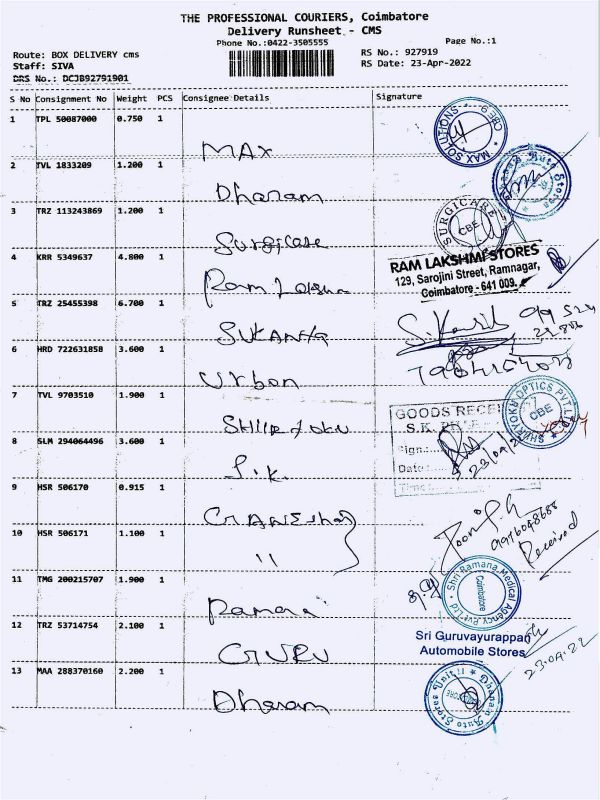 THE PROFESSIONAL COURIERS, Coimbatore
Delivery Runsheet - CMS
Phone No.:0422-3505555
Page No.:1
Route: BOX DELIVERY cms
RS No.: 927919
Staff: SIVA
RS Date: 23-Apr-2022
DRS No.: DCJB92791901
S No Consignment No Weight PCS Consignee Details Signature
1 TPL 50087000 0.750 1
MAX
MAX SOLUTIONS CBE-9
2 TVL 1833209 1.200 1
Dharam
Auto Stores
3 TRZ 113243869 1.200 1
Surgicare
SURGICARE CBE
4 KRR 5349637 4.800 1
RAM LAKSHMI STORES
129, Sarojini Street, Ramnagar,
Coimbatore - 641 009.
Ram
5 TRZ 25455398 6.700 1
SUKANYA
6 HRD 722631858 3.600 1
Urban
7 TVL 9703510 1.900 1
SHURYOKU OPTICS PVT.LTD CBE
GOODS RECEI
S.K.
8 SLM 294064496 3.600 1
Sign:
Date:
Time:
23/04/2
S.K.
9 HSR 506170 0.915 1
GANESH
10 HSR 506171 1.100 1
"
9976048688
Received
11 TMG 200215707 1.900 1
Shri Ramana Medical Agency Pvt Ltd Coimbatore
Ramana
12 TRZ 53714754 2.100 1
Sri Guruvayurappan
Automobile Stores
23.04.22
GURU
13 MAA 288370160 2.200 1
Dharam
Dhanam Auto Stores Unit II